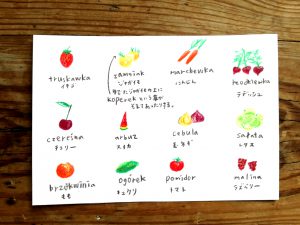 truskawka
イチゴ
ziemniak
ジャガイモ
koperek という葉が
marchewka
にんじん
rzodkiewka
ラディッシュ
czereśnia
チェリー
arbuz
スイカ
cebula
玉ネギ
sałata
レタス
brzoskwinia
もも
ogórek
キュウリ
pomidor
トマト
malina
ラズベリー